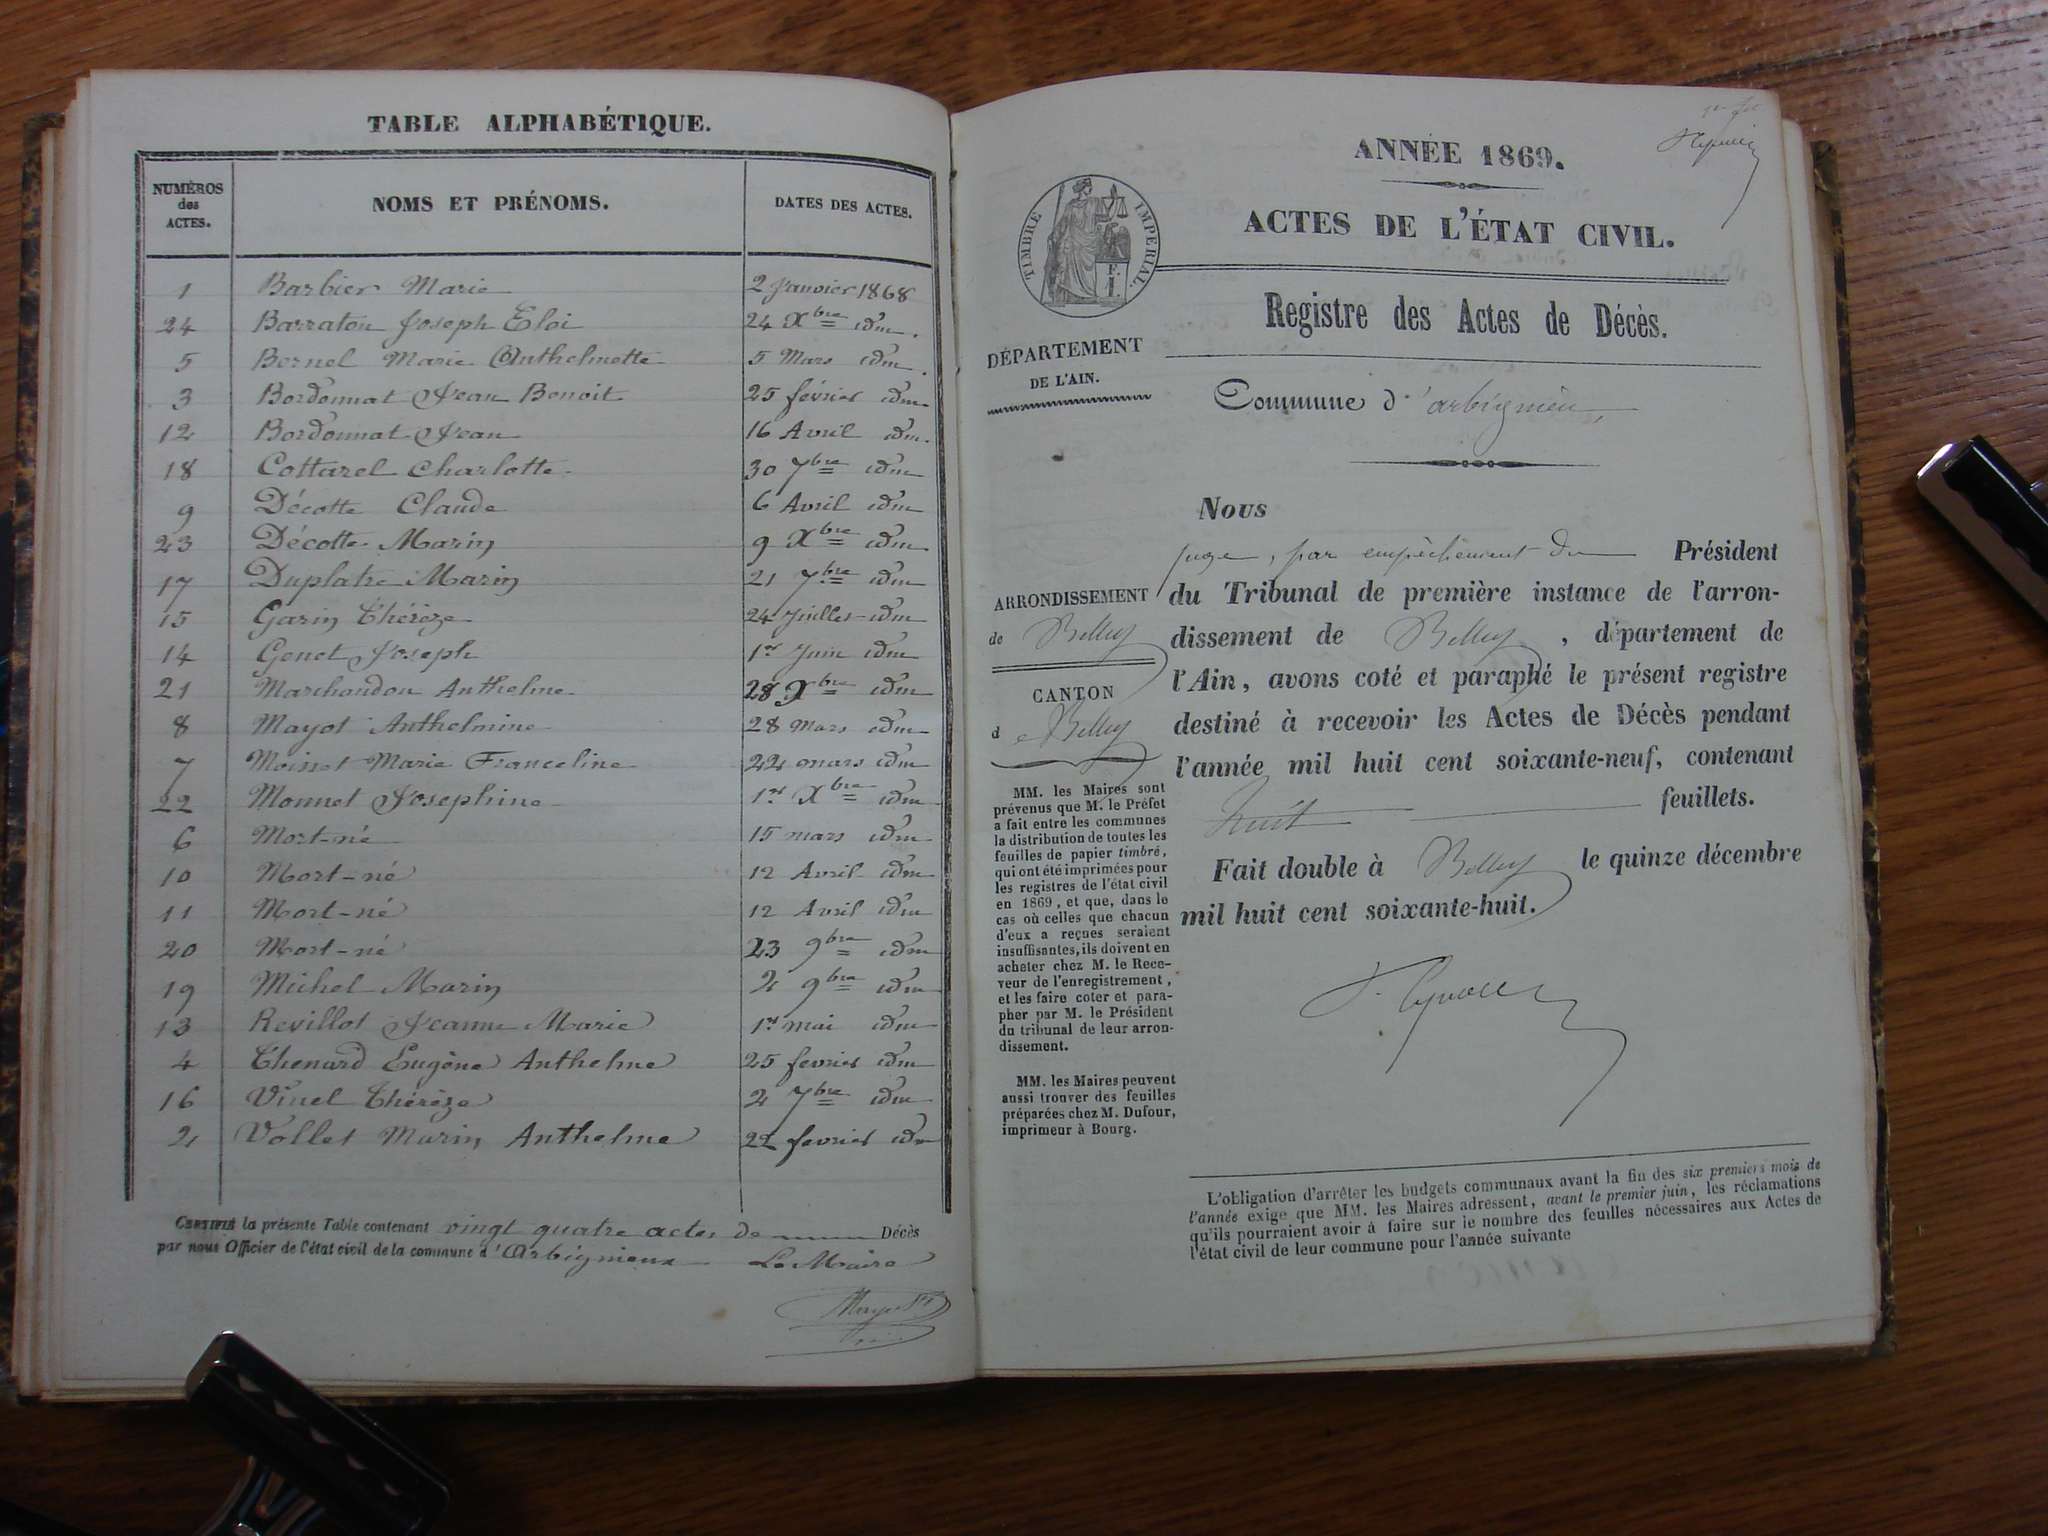 TABLE ALPHABÉTIQUE.
NUMÉROS des ACTES. NOMS ET PRÉNOMS. DATES DES ACTES.
1 Barbier Marie 2 Janvier 1868
24 Barraton Joseph Eloi 24 Xbre idm.
5 Bernel Marie Anthelmette 5 Mars idm.
3 Bordonnat Jean Benoit 25 février idm
12 Bordonnat Jean 16 Avril idm.
18 Cottarel Charlotte 30 7bre idm
9 Décotte Claude 6 Avril idm
23 Décotte Marin 9 Xbre idm
17 Duplatre Marin 21 7bre idm
15 Garin Thérèze 24 Juillet idm
14 Genet Joseph 1er Juin idm
21 Marchondon Anthelme 28 Xbre idm
8 Mayot Anthelmine 28 Mars idm
7 Moisset Marie Franceline 22 mars idm
22 Monnet Josephine 1er Xbre idm
6 Mort-né 15 mars idm
10 Mort-né 12 Avril idm
11 Mort-né 12 Avril idm
20 Mort-né 23 9bre idm
19 Michel Marin 2 9bre idm
13 Revillot Jeanne Marie 1er mai idm
4 Thenard Eugène Anthelme 25 fevrier idm
16 Vinel Thérèze 2 7bre idm
2 Vollet Marin Anthelme 22 fevrier idm
CERTIFIÉ la présente Table contenant vingt quatre actes de Décès
par nous Officier de l'état civil de la commune d'Arbignieux Le Maire
ANNÉE 1869.
TIMBRE IMPERIAL.
F.
1.
ACTES DE L'ÉTAT CIVIL.
Registre des Actes de Décès.
DÉPARTEMENT
DE L'AIN.
Commune d'arbignieu,
Nous
juge, par empêchement du Président
ARRONDISSEMENT
de Belley
CANTON
de Belley
du Tribunal de première instance de l'arron-
dissement de Belley, département de
l'Ain, avons coté et paraphé le présent registre
destiné à recevoir les Actes de Décès pendant
l'année mil huit cent soixante-neuf, contenant
huit feuillets.
Fait double à Belley le quinze décembre
mil huit cent soixante-huit.
MM. les Maires sont
prévenus que M. le Préfet
a fait entre les communes
la distribution de toutes les
feuilles de papier timbré,
qui ont été imprimées pour
les registres de l'état civil
en 1869, et que, dans le
cas où celles que chacun
d'eux a reçues seraient
insuffisantes, ils doivent en
acheter chez M. le Rece-
veur de l'enregistrement,
et les faire coter et para-
pher par M. le Président
du tribunal de leur arron-
dissement.
MM. les Maires peuvent
aussi trouver des feuilles
préparées chez M. Dufour,
imprimeur à Bourg.
L'obligation d'arrêter les budgets communaux avant la fin des six premiers mois de
l'année exige que MM. les Maires adressent, avant le premier juin, les réclamations
qu'ils pourraient avoir à faire sur le nombre des feuilles nécessaires aux Actes de
l'état civil de leur commune pour l'année suivante